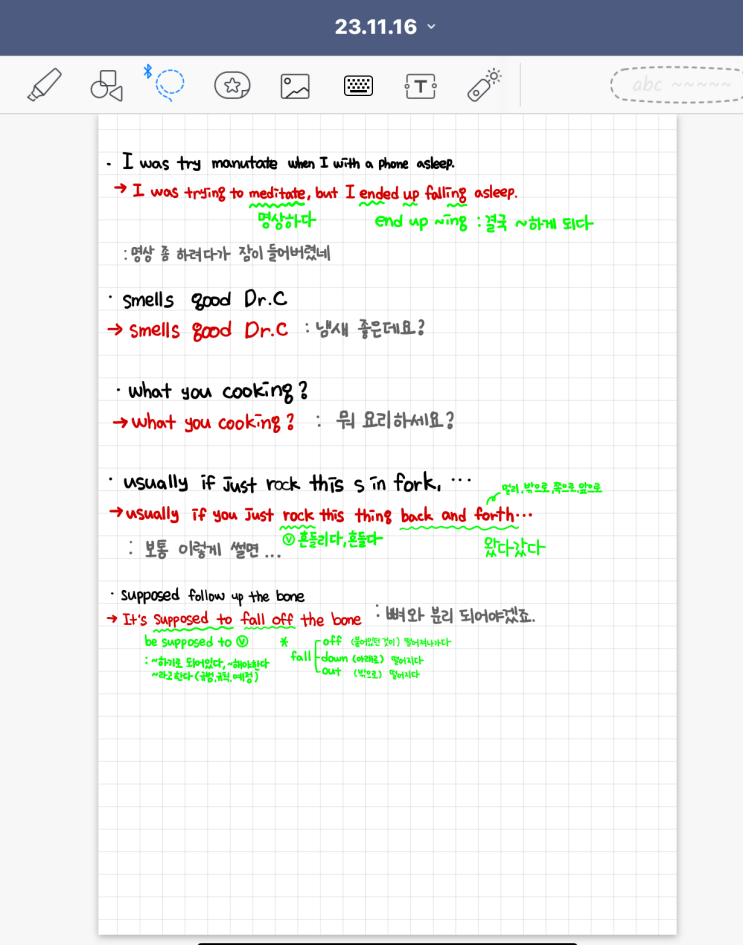 23.11.16
abc ~~~~~
· I was try manutate when I with a phone asleep.
→ I was trying to meditate, but I ended up falling asleep.
명상하다
end up ~ing : 결국 ~하게 되다
: 명상 좀 하려다가 잠이 들어버렸네
· smells good Dr.C
→ smells good Dr.C : 냄새 좋은데요?
· what you cooking?
→ what you cooking? : 뭐 요리하세요?
· usually if Just rock this s in fork, ...
멀리, 밖으로, 쪽으로, 앞으로
→ usually if you Just rock this thing back and forth...
ⓥ 흔들리다, 흔들다
왔다갔다
: 보통 이렇게 썰면 ...
· supposed follow up the bone
→ It's supposed to fall off the bone : 뼈와 분리 되어야겠죠.
be supposed to ⓥ
: ~하기로 되어있다, ~해야한다
~라고한다 (규범, 규칙, 예정)
* fall
off (붙어있던 것이) 떨어져나가다
down (아래로) 떨어지다
out (밖으로) 떨어지다